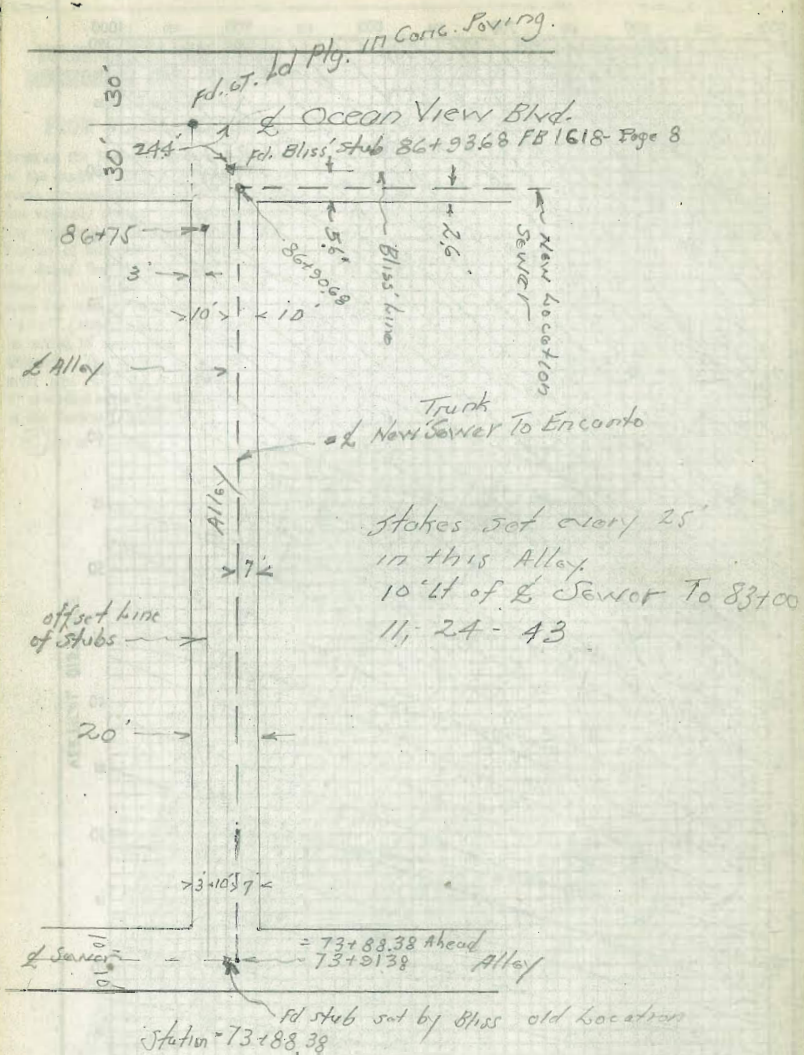 Fd. GT. Ld Plg. in Conc. Paving.
30'
30'
℄ Ocean View Blvd.
24.4'
Fd. Bliss' Stub 86+93.68 FB 1618- Page 8
86+75
86+90.68
5.6'
2.6
Bliss' Line
New Location
Sewer
3'
10'
10'
℄ Alley
Trunk
℄ New Sewer To Encanto
Alley
7'
Stakes set every 25'
in this Alley.
10' Lt of ℄ Sewer To 83+00
11,- 24 - 43
offset Line
of Stubs
20'
3'
10'
7'
10'
10'
= 73+88.38 Ahead
℄ Sewer
73+91.38
Alley
Fd stub set by Bliss old Location
Station = 73+88.38